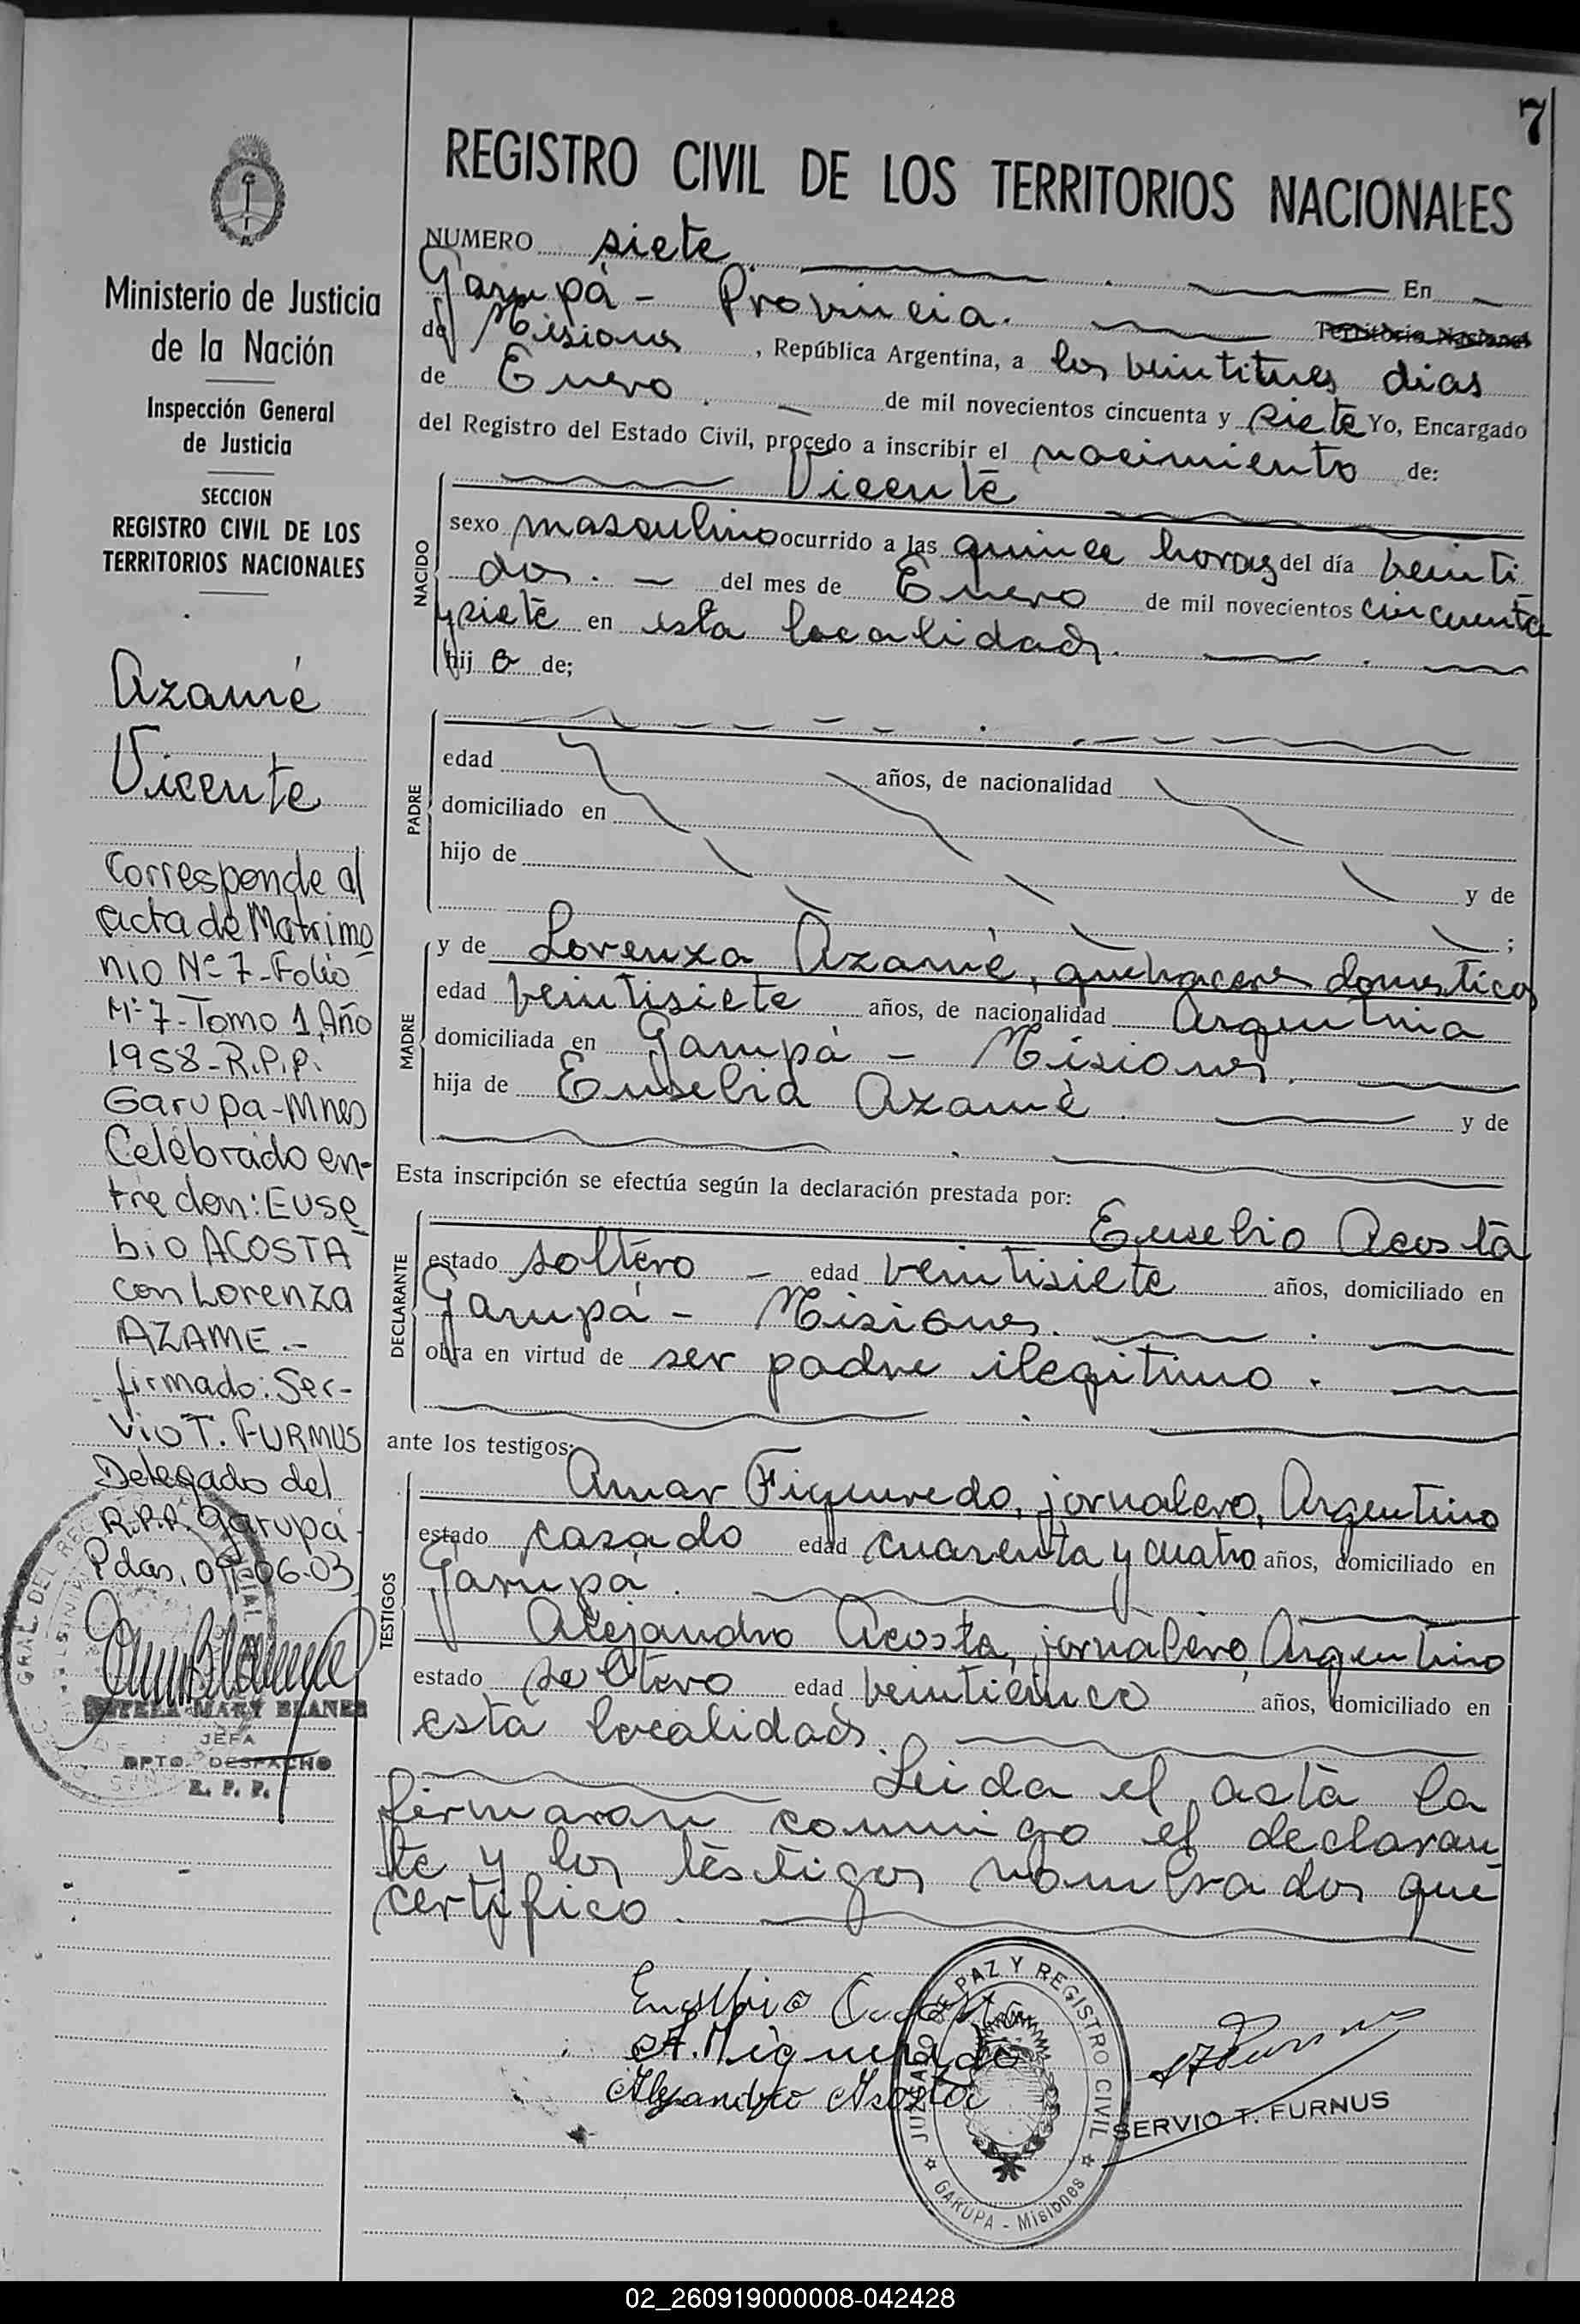 7
REGISTRO CIVIL DE LOS TERRITORIOS NACIONALES
Ministerio de Justicia
de la Nación
Inspección General
de Justicia
SECCION
REGISTRO CIVIL DE LOS
TERRITORIOS NACIONALES
Azamé
Vicente
Corresponde al
acta de Matrimo
nio Nº 7-Folio
Nº 7-Tomo 1, Año
1958-R.P.P.
Garupa-Mnes
Celebrado en-
tre don: Euse
bio ACOSTA
con Lorenza
AZAME.-
firmado: Ser-
vio T. FURMUS
Delegado del
R.P.P. Garupá
Pdas, 09-06-03
ESTELA MARY BLANES
JEFA
DPTO. DESPACHO
R. P. P.
NUMERO siete En
Garupá - Provincia. Territorio Nacional
de Misiones, República Argentina, a los veintitres dias
de Enero de mil novecientos cincuenta y siete Yo, Encargado
del Registro del Estado Civil, procedo a inscribir el nacimiento de:
NACIDO
Vicente
sexo masculino ocurrido a las quince horas del día veinti
dos. del mes de Enero de mil novecientos cincuenta
y siete en esta localidad.
hijo de;
PADRE
edad años, de nacionalidad
domiciliado en
hijo de y de
;
MADRE
y de Lorenza Azamé, quehaceres domesticos
edad veintisiete años, de nacionalidad Argentina
domiciliada en Garupá - Misiones.
hija de Eusebia Azamé y de
Esta inscripción se efectúa según la declaración prestada por:
DECLARANTE
Eusebio Acosta
estado soltero - edad veintisiete años, domiciliado en
Garupá - Misiones.
obra en virtud de ser padre ilegitimo.
ante los testigos:
TESTIGOS
Amar Figueredo, jornalero, Argentino
estado casado edad cuarenta y cuatro años, domiciliado en
Garupá.
Alejandro Acosta, jornalero, Argentino
estado soltero edad veinticinco años, domiciliado en
esta localidad.
Leida el acta la
firmaran conmigo el declaran
te y los testigos nombrados que
certifico.
Eusebio Acosta
A. Figueredo
Alejandro Acosta
JUZGADO DE PAZ Y REGISTRO CIVIL
GARUPA - Misiones
SERVIO T. FURNUS
02_260919000008-042428